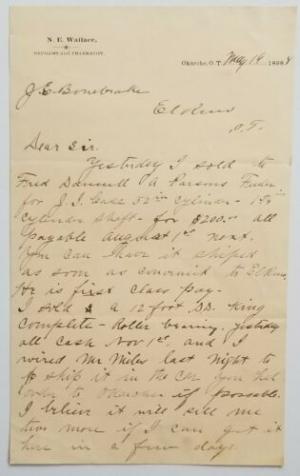 N. E. Wallace,
DRUGGIST AND PHARMACIST.
Okarche, O. T. May 19 1898
J E Bonebrake
El Reno
O. T.
Dear Sir.
Yesterday I sold to
Fred Dammell a Parsons Feeder
for J. I. Case 32in cylinder - 1
cylinder shaft - for $200.00 all
payable August 1st next.
You can have it shiped
as soon as convenient to El Reno
He is first class pay.
I sold a 12 foot D.D. King
complete - Roller bearing. yesterday
all cash Nov 1st. and I
wired Mr Miles last night to
ship it in the car you had
over to Okarche if possable.
I believe it will sell me
two more if I can get it
here in a few days.